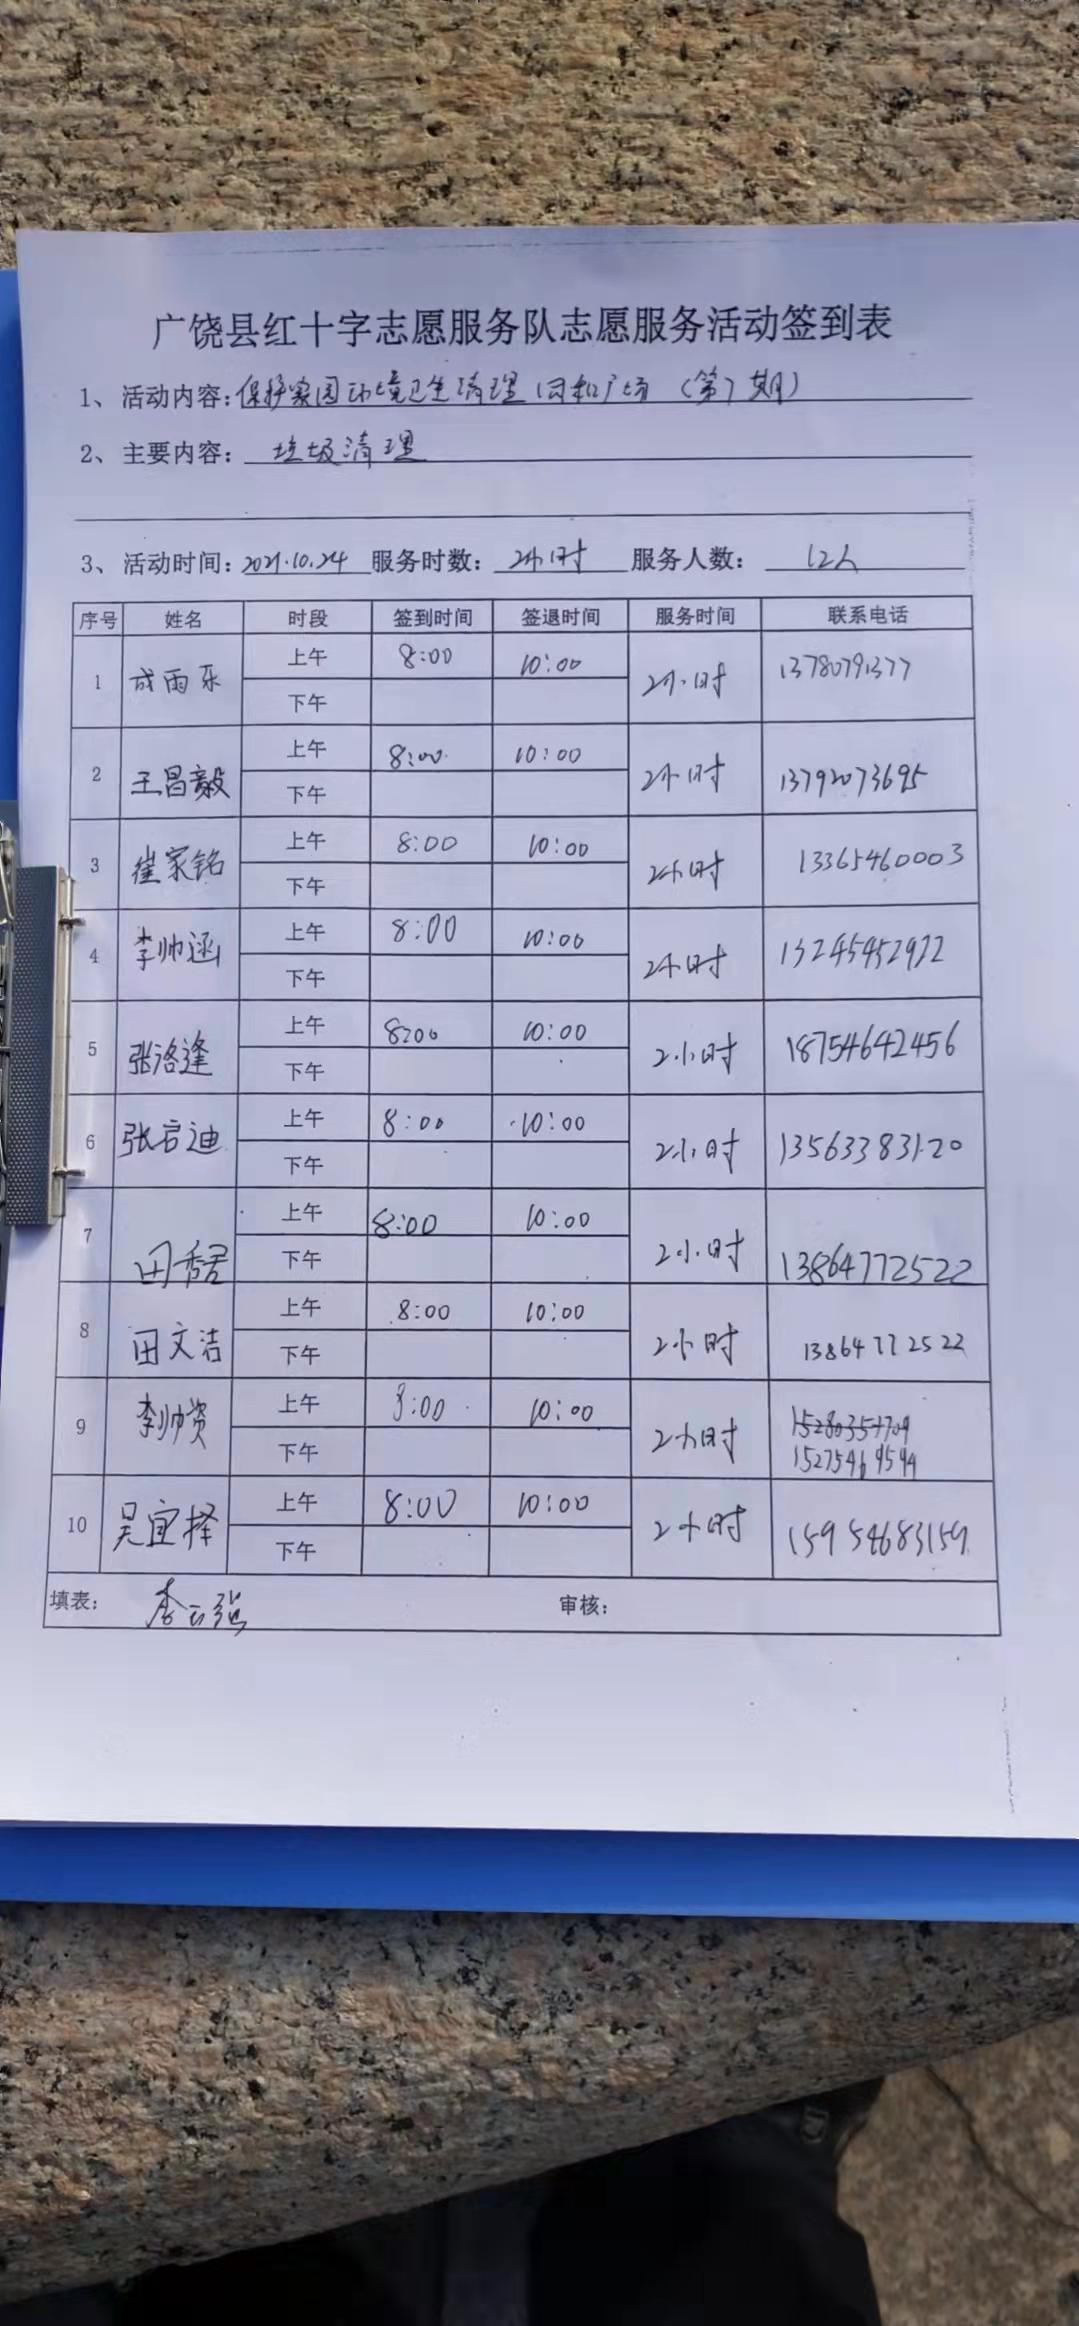 广饶县红十字志愿服务队志愿服务活动签到表
1、活动内容:保护家园环境卫生清理 同和广场 (第7期)
2、主要内容: 垃圾清理
3、活动时间:2021.10.24 服务时数: 2小时 服务人数: 12人
序号 姓名 时段 签到时间 签退时间 服务时间 联系电话
1 成雨乐 上午 8:00 10:00 2小时 13780791377
下午
2 王昌毅 上午 8:00 10:00 2小时 13792073695
下午
3 崔家铭 上午 8:00 10:00 2小时 13365460003
下午
4 李帅涵 上午 8:00 10:00 2小时
下午
5 张洛逢 上午 8:00 10:00 2小时 18754642456
下午
6 张启迪 上午 8:00 10:00 2小时 13563383120
下午
7 田 上午 8:00 10:00 2小时 13864772522
下午
8 田文洁 上午 8:00 10:00 2小时 13864772522
下午
9 李帅资 上午 8:00 10:00 2小时
15275469594
下午
10 吴宜择 上午 8:00 10:00 2小时 15954683159
下午
填表: 李云强 审核: